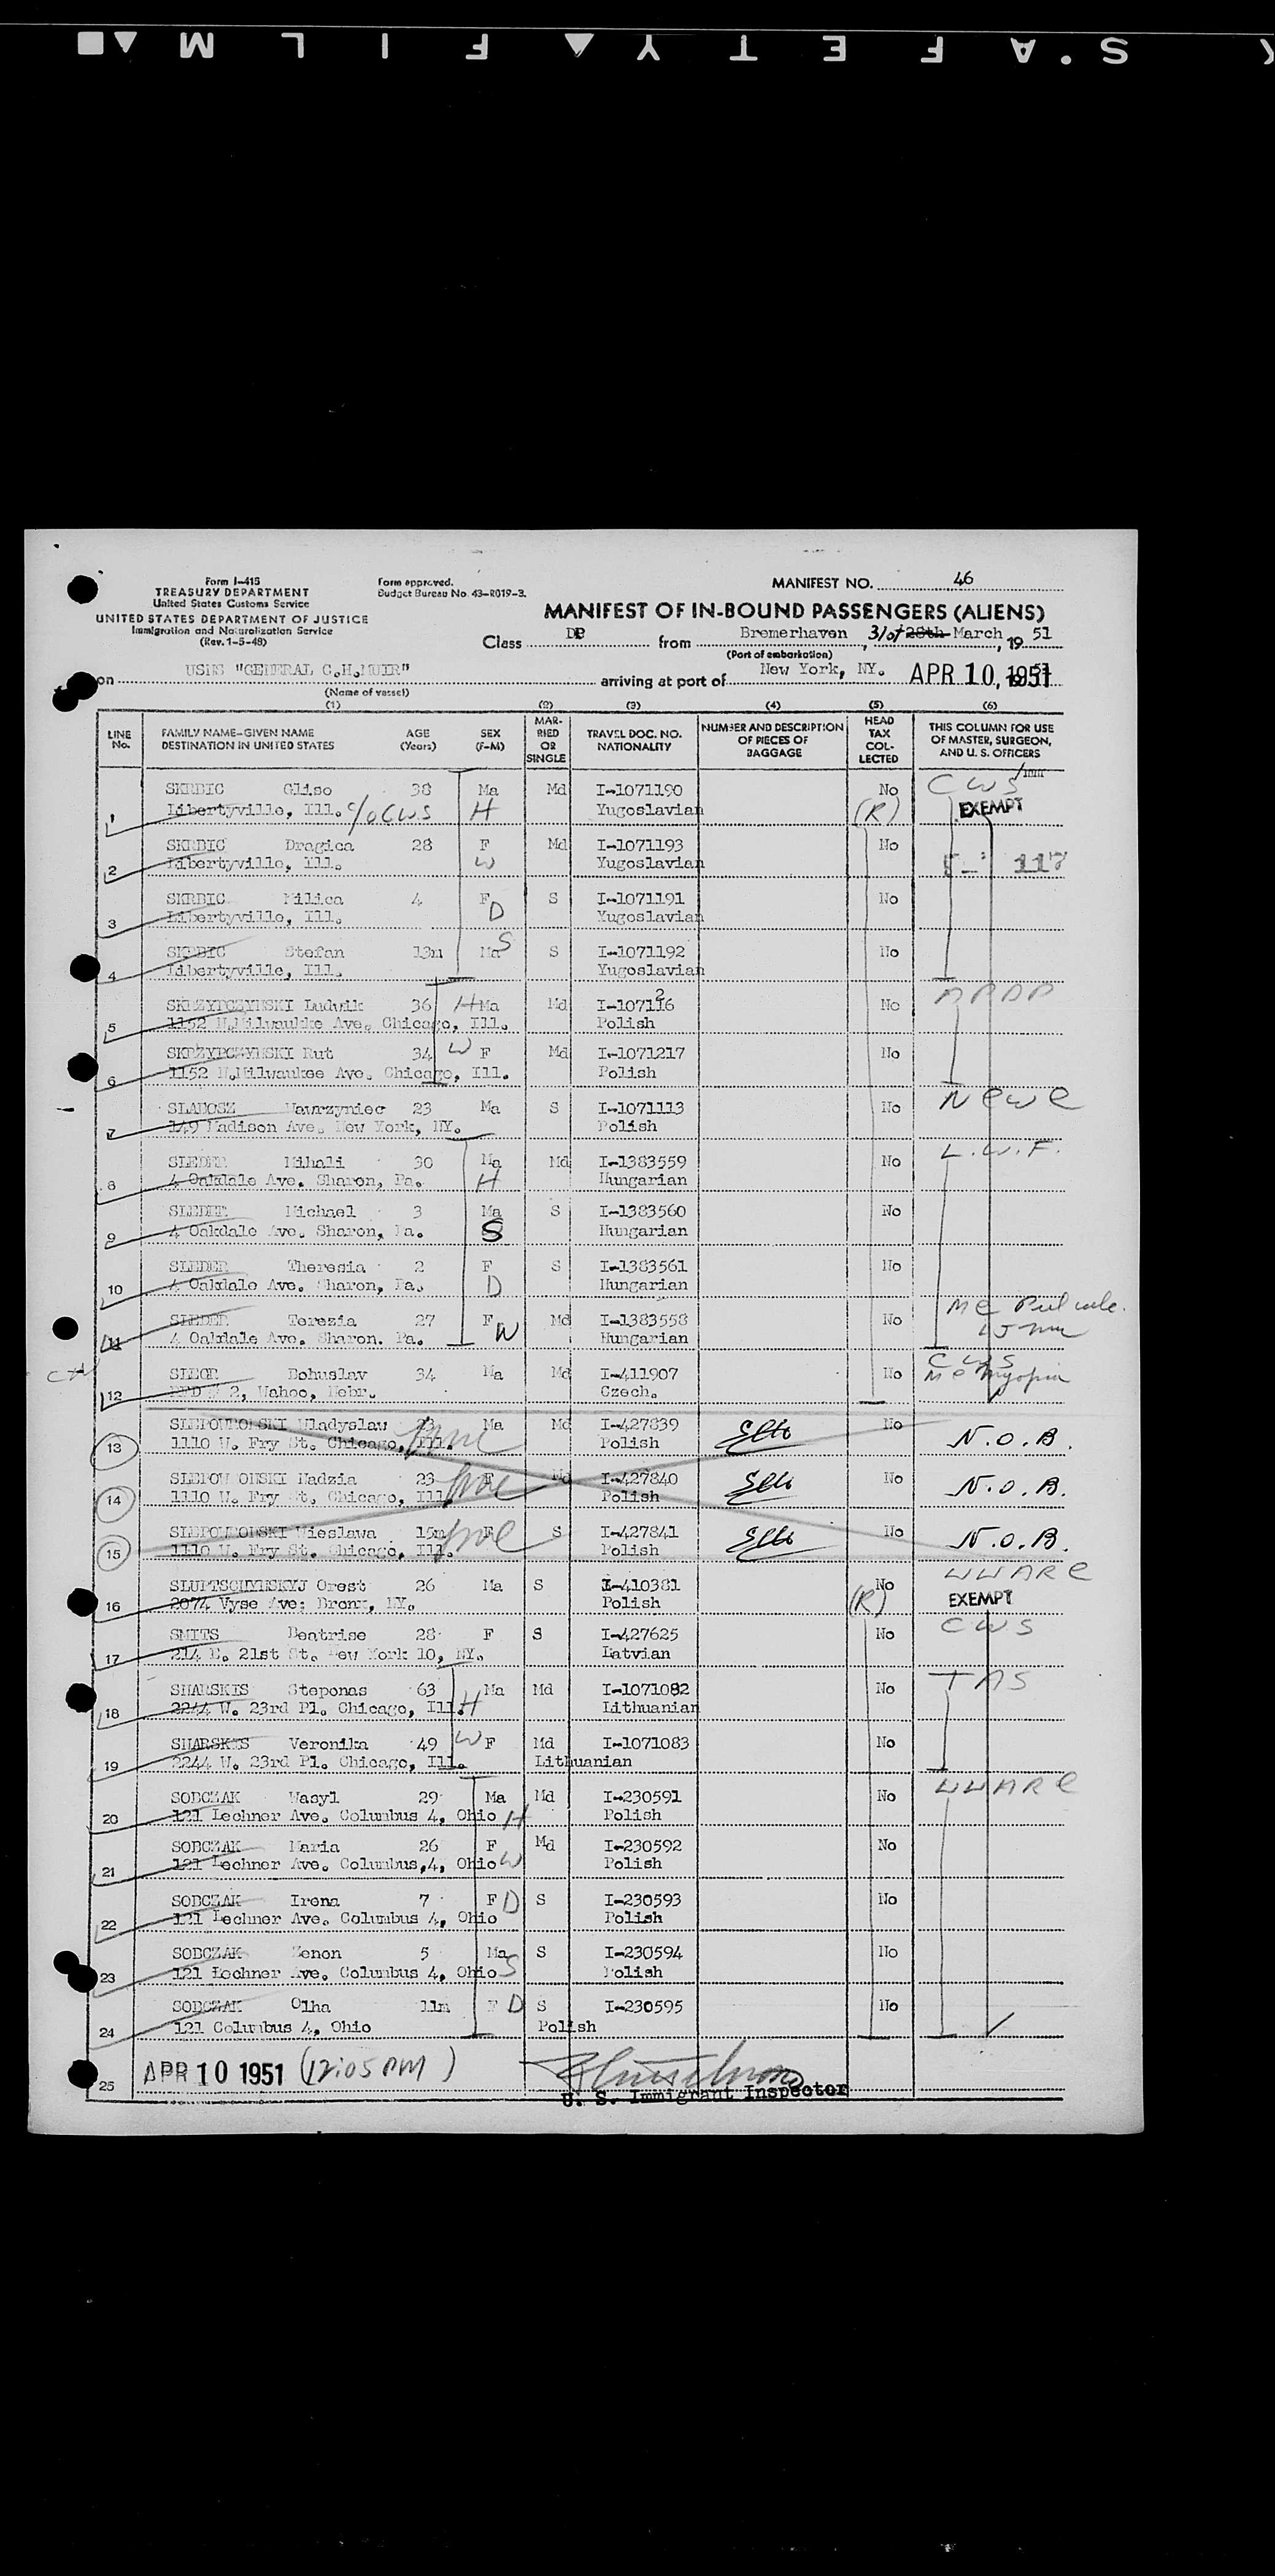 S.AFETY FILM
Form I-415
TREASURY DEPARTMENT
United States Customs Service
UNITED STATES DEPARTMENT OF JUSTICE
Immigration and Naturalization Service
(Rev. 1-5-48)
Form approved.
Budget Bureau No. 43-R019-3.
MANIFEST NO. 46
MANIFEST OF IN-BOUND PASSENGERS (ALIENS)
Class DP from Bremerhaven, 31st 28th March, 19 51
(Port of embarkation)
on USNS "GENERAL C.H.MUIR" arriving at port of New York, NY. APR 10, 1951
(Name of vessel)
(1) (2) (3) (4) (5) (6)
LINE No. FAMILY NAME-GIVEN NAME DESTINATION IN UNITED STATES AGE (Years) SEX (F-M) MARRIED OR SINGLE TRAVEL DOC. NO. NATIONALITY NUMBER AND DESCRIPTION OF PIECES OF BAGGAGE HEAD TAX COLLECTED THIS COLUMN FOR USE OF MASTER, SURGEON, AND U. S. OFFICERS
SKRBIC Gliso 38 Ma Md I-1071190 No CWS
1 Libertyville, Ill. c/o CWS H Yugoslavian (R) EXEMPT
SKRBIC Dragica 28 F Md I-1071193 No
2 Libertyville, Ill. W Yugoslavian 117
SKRBIC Milica 4 F S I-1071191 No
3 Libertyville, Ill. D Yugoslavian
SKRBIC Stefan 13m Ma S S I-1071192 No
4 Libertyville, Ill. Yugoslavian
SKRZYPCZYNSKI Ludwik 36 H Ma Md I-1071216 No
5 1152 N.Milwaukke Ave. Chicago, Ill. Polish
SKRZYPCZYNSKI Rut 34 W F Md I-1071217 No
6 1152 N.Milwaukee Ave. Chicago, Ill. Polish
SLADOSZ Wawrzyniec 23 Ma S I-1071113 No NCWC
7 149 Madison Ave. New York, NY. Polish
SLEDER Mihali 30 Ma Md I-1383559 No L.W.F.
8 4 Oakdale Ave. Sharon, Pa. H Hungarian
SLEDER Michael 3 Ma S I-1383560 No
9 4 Oakdale Ave. Sharon, Pa. S Hungarian
SLEDER Theresia 2 F S I-1383561 No
10 4 Oakdale Ave. Sharon, Pa. D Hungarian
SLEDER Terezia 27 F W Md I-1383558 No
11 4 Oakdale Ave. Sharon. Pa. Hungarian
Bohuslav 34 Ma Md I-411907 No CWS
12 2, Wahoo, Nebr. Czech. MC Myopia
SLEPOWRONSKI Wladyslaw 23 Ma Md I-427839 No
13 1110 W. Fry St. Chicago, Ill. Polish N.O.B.
SLEPOWRONSKI Nadzia 23 F Md I-427840 No
14 1110 W. Fry St. Chicago, Ill. Polish N.O.B.
SLEPOWRONSKI Wieslawa 15m F S I-427841 No
15 1110 W. Fry St. Chicago, Ill. Polish N.O.B.
Orest 26 Ma S I-410381 No UUARC
16 2074 Vyse Ave; Bronx, NY. Polish (R) EXEMPT
SMITS Beatrise 28 F S I-427625 No CWS
17 214 E. 21st St. New York 10, NY. Latvian
SNARSKIS Steponas 63 Ma Md I-1071082 No
18 2244 W. 23rd Pl. Chicago, Ill. H Lithuanian
SNARSKIS Veronika 49 W F Md I-1071083 No
19 2244 W. 23rd Pl. Chicago, Ill. Lithuanian
SOBCZAK Wasyl 29 Ma Md I-230591 No UUARC
20 121 Lechner Ave. Columbus 4, Ohio H Polish
SOBCZAK Maria 26 F Md I-230592 No
21 121 Lechner Ave. Columbus,4, Ohio W Polish
SOBCZAK Irena 7 F D S I-230593 No
22 121 Lechner Ave. Columbus 4, Ohio Polish
SOBCZAK Zenon 5 Ma S S I-230594 No
23 121 Lechner Ave. Columbus 4, Ohio Polish
SOBCZAK Olha 11m F D S I-230595 No
24 121 Columbus 4, Ohio Polish
25 APR 10 1951 (12:05 PM)
U. S. Immigrant Inspector